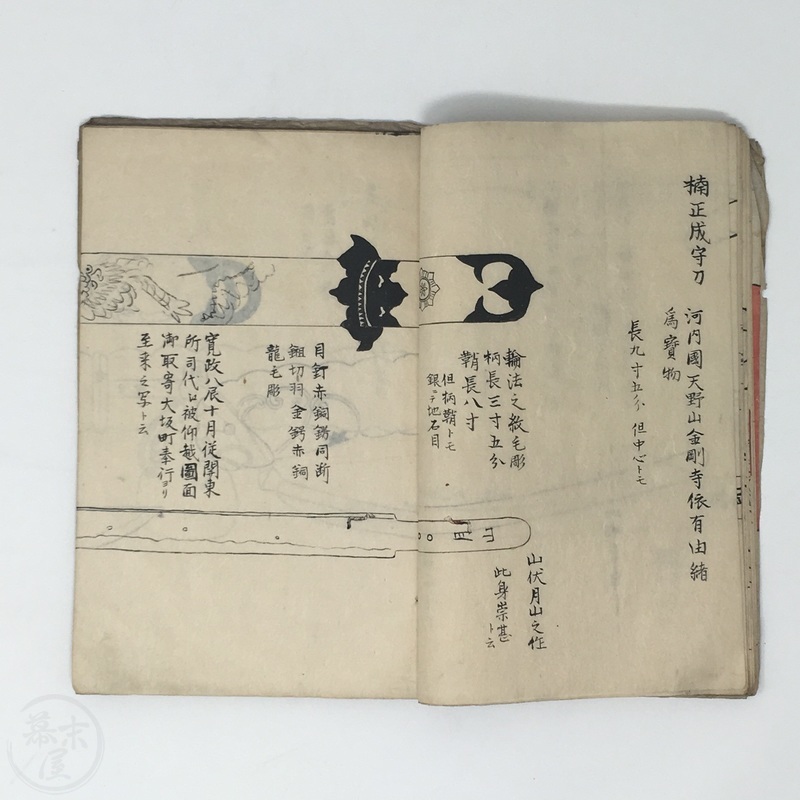 楠正成守刀
河内國天野山金剛寺依有由緒
為寳物
長九寸五分 但中心トモ
輪法之紋毛彫
柄長三寸五分
鞘長八寸
但柄鞘トモ
銀ニテ地石目
山伏月山之作
此身崇甚ト云
目釘赤銅鎺同断
鎺切羽金鍔赤銅
龍毛彫
寛政八辰十月従関東
所司代江被仰越圖面
御取寄大坂町奉行ヨリ
至来之写ト云
幕末屋